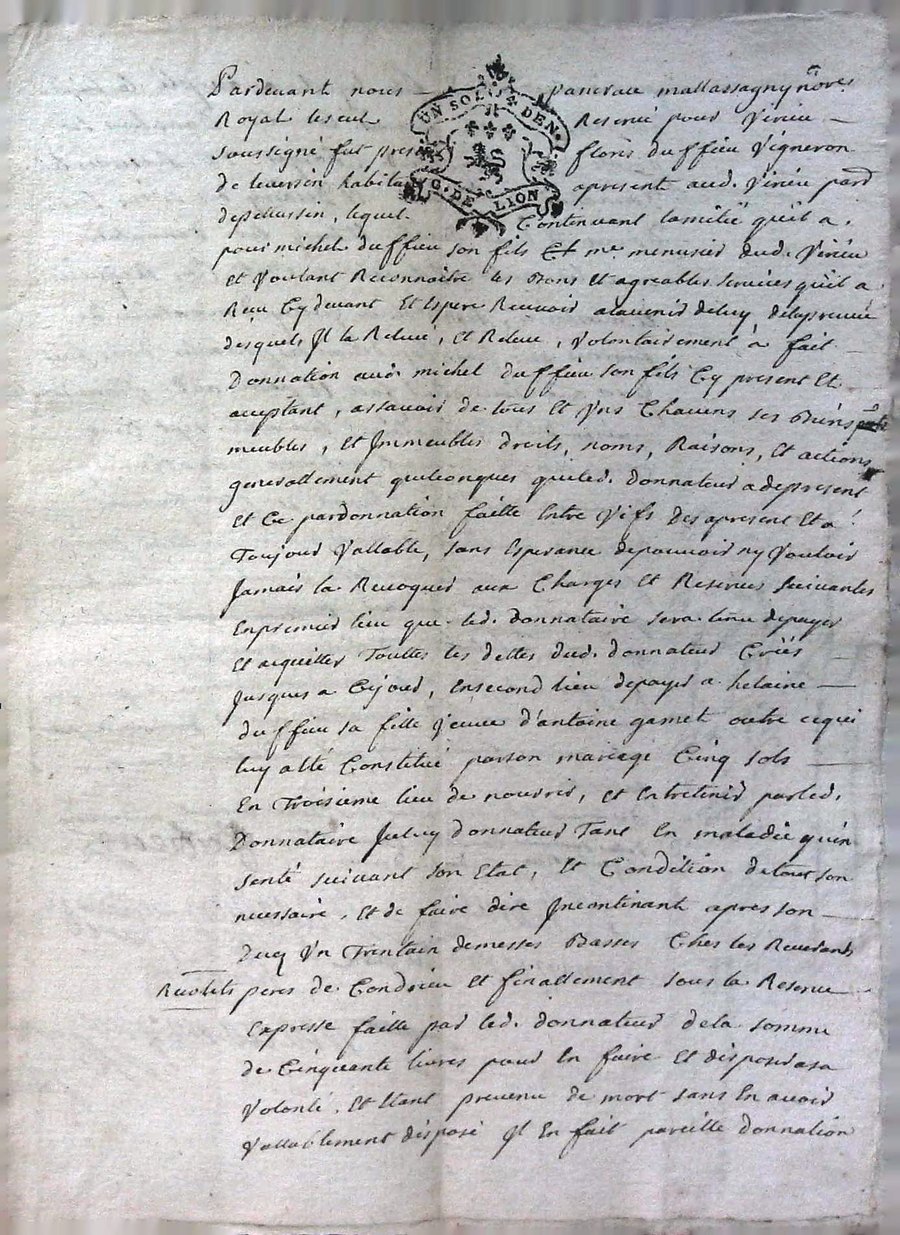 Pardevant nous pancrace mallassagny nore
UN SOL DEN.
Royal les cul Reservé pour Virieu
soussigné fut pres floris duffieu Vigneron
G. DE LION
de leversin habita apresent aud. Virieu par
depelussin, lequel Contenuant lamitié quil a
pour michel duffieu son fils Et me. menusier dud. Virieu
et Voulant Reconnaitre les Bons Et agreables services quil a
Reçu Cydevant Et Espere Recevoir alavenir deluy delapreuve
desquels Il la Relevé, et Releve, Volontairement à fait
Donnation aud. michel duffieu son fils Cy present Et
acceptant, assavoir de tous Et Uns Chacuns ses Biens
meubles, et Immeubles droits, noms, Raisons, Et actions
generallement quelconques queled. donnateur adepresent
et Ce pardonnation faitte Entre Vifs des apresent Et a
Toujour Vallable, sans Esperance depouvoir ny Vouloir
Jamais la Revoquer aux Charges Et Reserves suivantes
Enpremier lieu que led. donnataire sera tenu depayer
et acquitter Touttes les dettes dud. donnateur Créés
Jusques a Cejour, Ensecond lieu depayer a helaine
duffieu sa fille veuve d'antoine gamet outre cequi
luy a été Constitué parson mariage Cinq sols
En Troisieme lieu de nourrir, et Entretenir parled.
Donnataire Iceluy donnateur Tant En maladie quen
senté suivant son Etat, Et Condition detout son
necessaire, Et de faire dire Incontinant apres son
Decy Un Trentain demesses Basses Ches les Reverands
Recolets peres de Condrieu et finallement sous la Reserve
Expresse faitte par led. donnateur dela somme
de Cinquante livres pour En faire et disposer asa
Volonté, Et Etant prevenu de mort sans En avoir
Vallablement disposé Il En fait pareille donnation